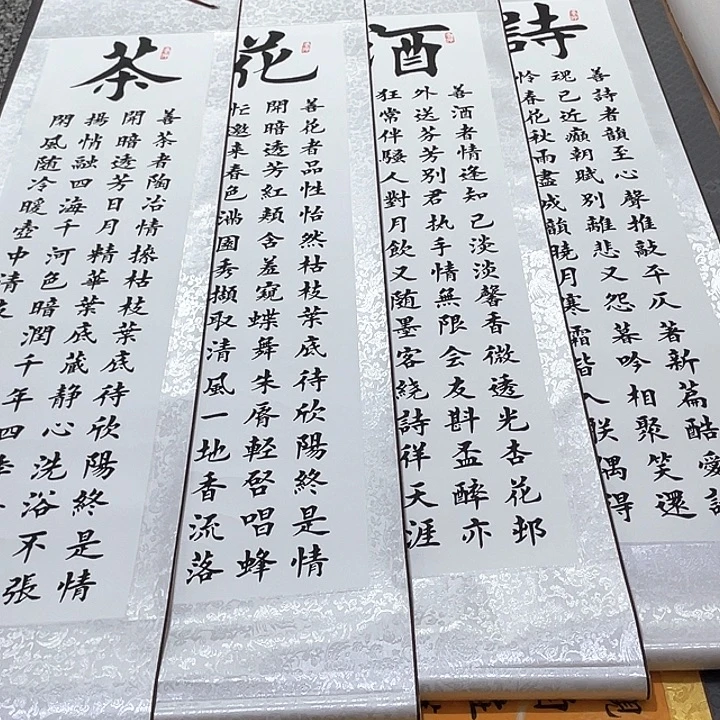 詩
善詩者韻至心聲推敲平仄著新篇酷愛詩
魂已近癲朝賦別離悲又怨暮吟相聚笑還
憐春花秋雨盡成韻曉月寒霜皆入朕偶得
酒
善酒者情逢知己淡淡馨香微透光杏花邨
外送芬芳別君执手情無限会友斟盃醉亦
狂常伴騷人對月飲又随墨客繞詩祥天涯
花
善花者品性怡然枯枝葉底待欣陽終是情
開暗透芳紅頰含羞窺蝶舞朱唇輕啓唱蜂
忙邀来春色滿園秀擷取清風一地香流落
茶
善茶者陶冶情操枯枝葉底待欣陽終是情
開暗透芳日月精華葉底蔵静心洗浴不張
揚情融四海千河色暗潤千年四季
閑風随冷暖壺中清